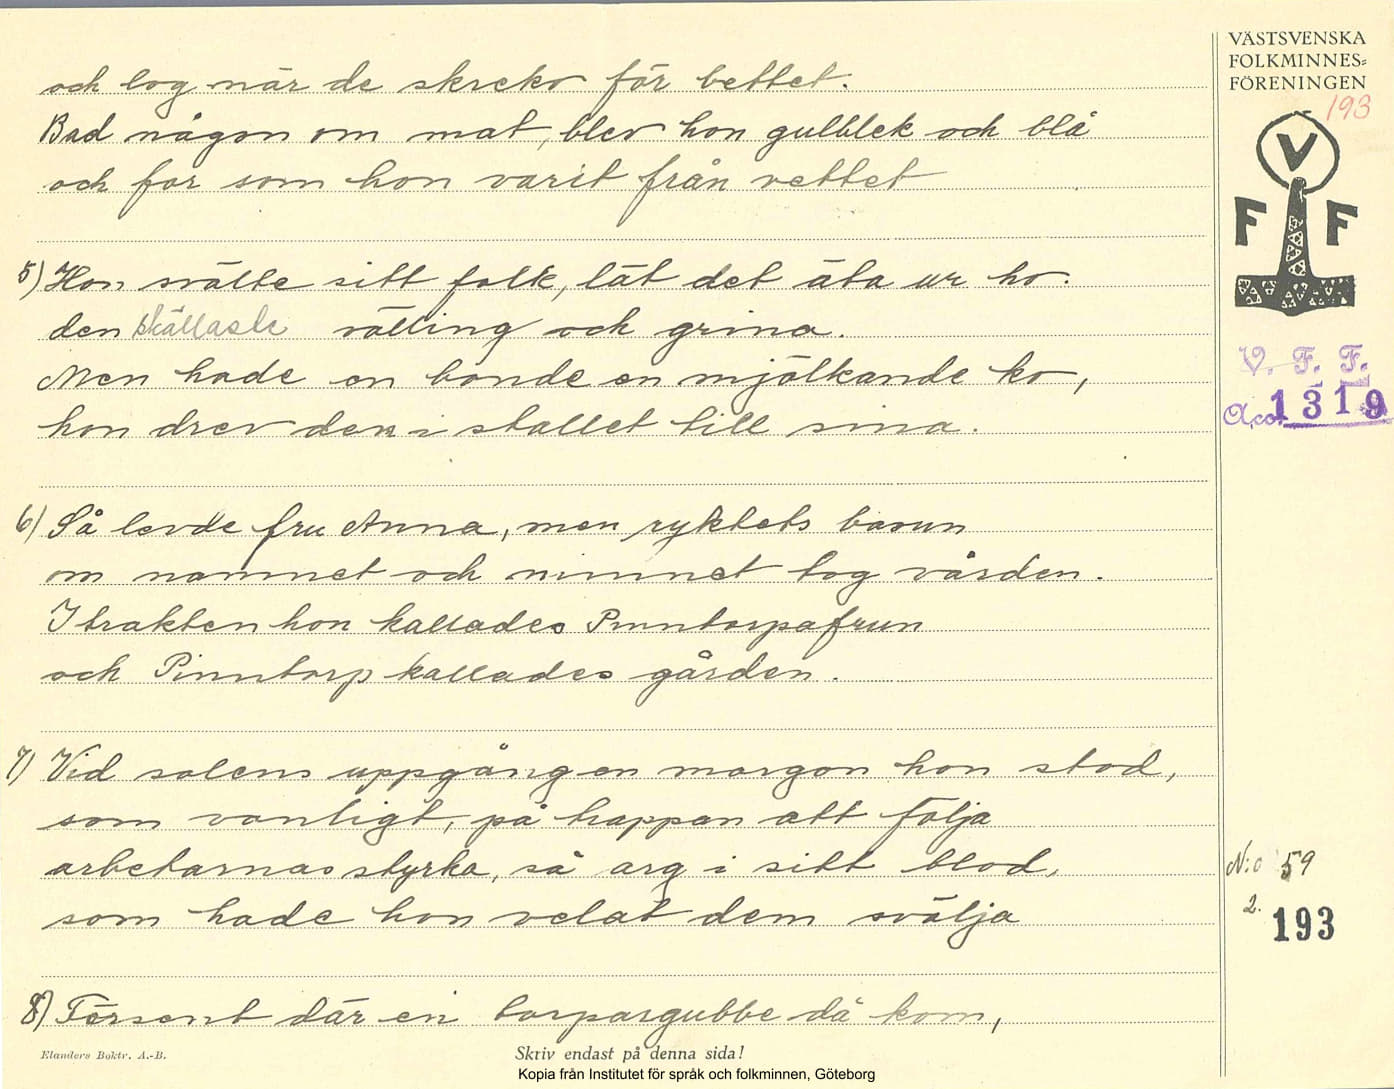 och log när de skreko för bettet.
Bad någon om mat, blev hon gulblek och blå
och for som hon varit från vettet
5) Hon svälte sitt folk, lät det äta ur ho.
den skällaste välling och grina.
Men hade en bonde en mjölkande ko,
hon drev den i stallet till sina.
6) Så levde fru Anna, men ryktets basun
om namnet och minnet tog vården.
I trakten hon kallades Pinntorpafrun
och Pinntorp kallades gården.
7) Vid solens uppgång en morgon hon stod,
som vanligt, på trappan att följa
arbetarnas styrka, så arg i sitt blod,
som hade hon velat dem svälja
8) Försent där en torpargubbe då kom,
Elanders Boktr. A.-B.
Skriv endast på denna sida!
Kopia från Institutet för språk och folkminnen, Göteborg
VÄSTSVENSKA
FOLKMINNES=
FÖRENINGEN
193
V
F F
V. F. F.
Acc. 1319
N:o 59
2.
193